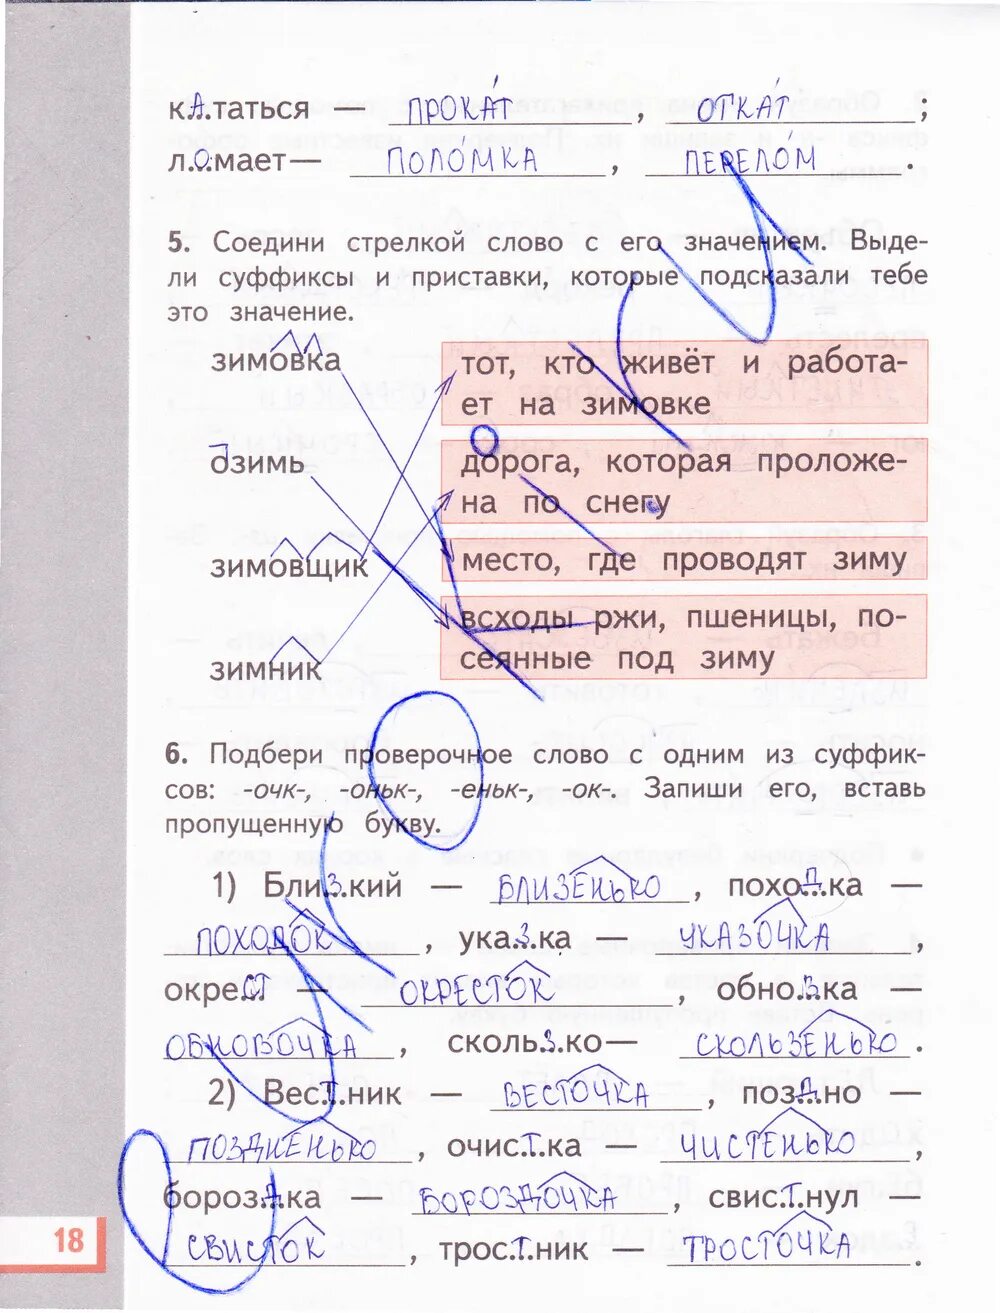 кА.таться — ПРОКА́Т , ОТКА́Т ;
л.О.мает— ПОЛО́МКА , ПЕРЕЛО́М .
5. Соедини стрелкой слово с его значением. Выде-
ли суффиксы и приставки, которые подсказали тебе
это значение.
зимовка
озимь
зимовщик
зимник
тот, кто живёт и работа-
ет на зимовке
дорога, которая проложе-
на по снегу
место, где проводят зиму
всходы ржи, пшеницы, по-
сеянные под зиму
6. Подбери проверочное слово с одним из суффик-
сов: -очк-, -оньк-, -еньк-, -ок-. Запиши его, вставь
пропущенную букву.
1) Бли.З.кий — БЛИЗЕНЬКО , похо.Д.ка —
ПОХОДОК , ука.З.ка — УКАЗОЧКА ,
окре.СТ — ОКРЕСТОК , обно.В.ка
ОБНОВОЧКА , сколь.З.ко— СКОЛЬЗЕНЬКО .
2) Вес.Т.ник — ВЕСТОЧКА , поз.Д.но —
ПОЗДНЕНЬКО , очис.Т.ка — ЧИСТЕНЬКО ,
бороз.Д.ка — БОРОЗДОЧКА , свис.Т.нул —
СВИСТОК , трос.Т.ник — ТРОСТОЧКА .
18